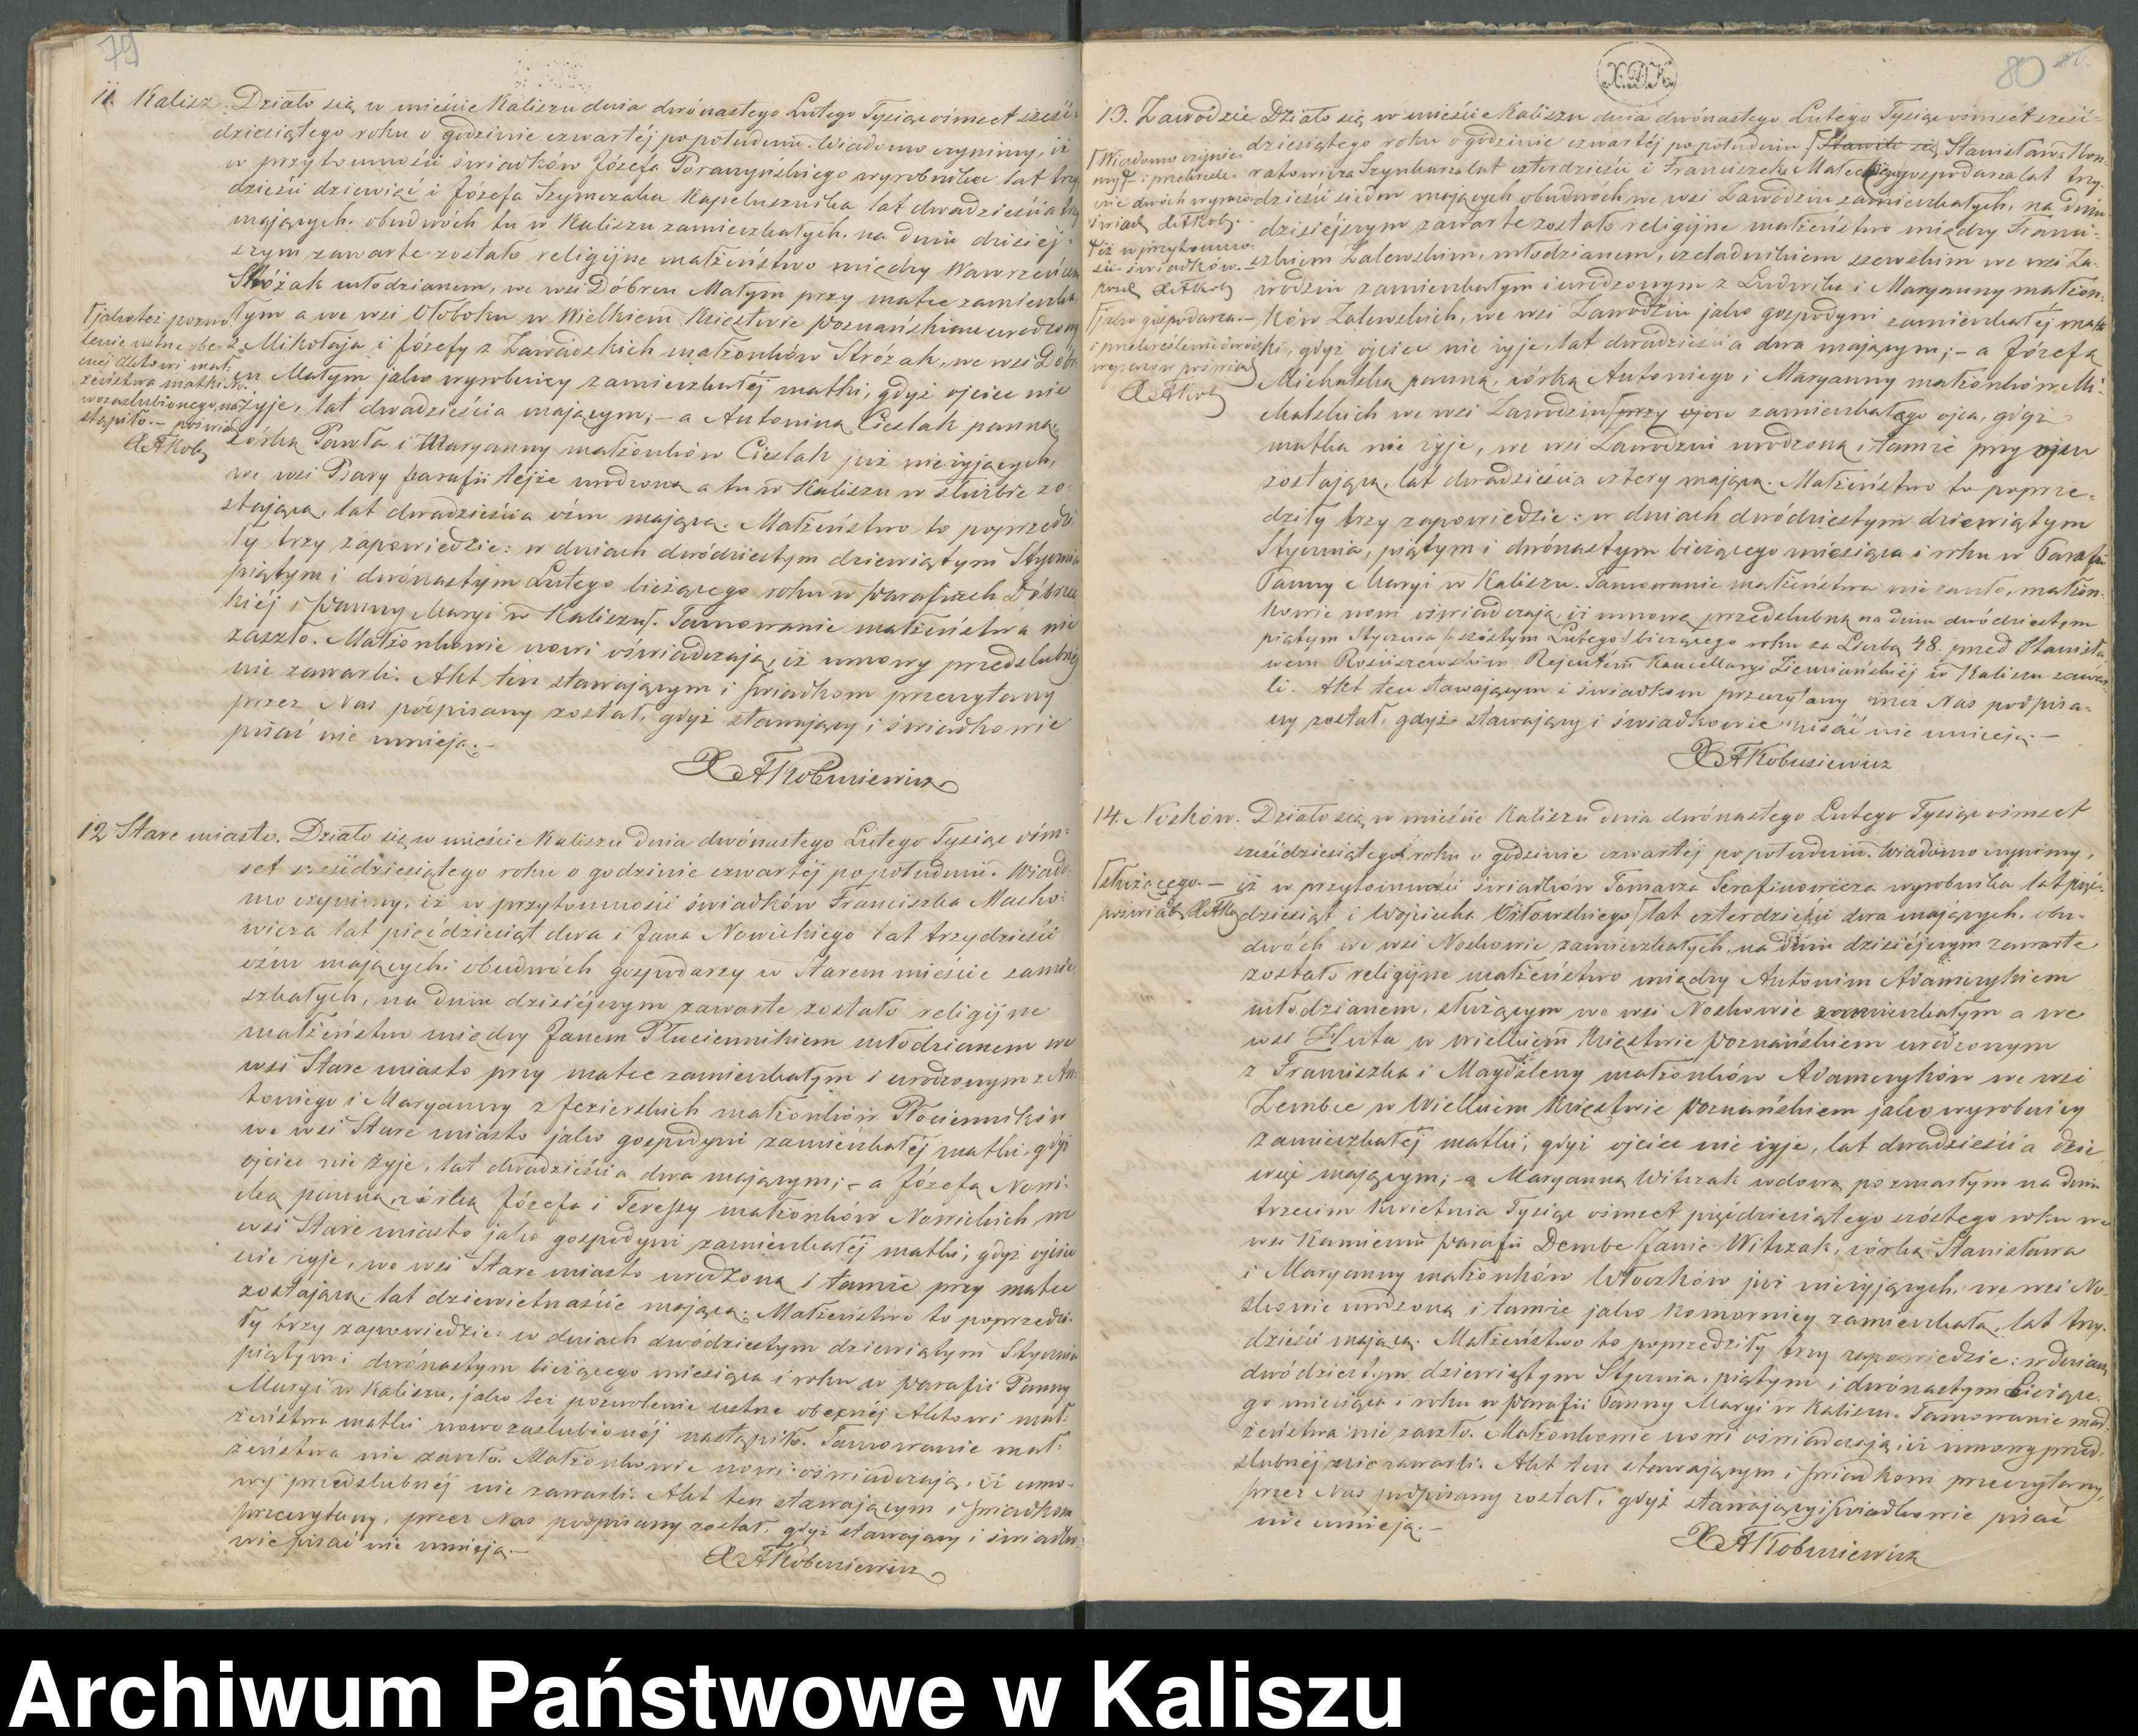 79
11. Kalisz. Działo się w mieście Kaliszu dnia dwónastego Lutego Tysiąc ośmset sześć
dziesiątego roku o godzinie czwartéj popołudniu. Wiadomo czynimy, iż
w przytomności świadków Józefa Poranyńskiego wyrobnika lat trzy
dzieści dziewięć i Józefa Szymczaka Kapelusznika lat dwadzieścia trzy
mających. obudwóch tu w Kaliszu zamieszkałych. na dniu dzisiéj-
szym zawarte zostało religijne małżeństwo między Wawrzeńcem
Stróżak młodzianem, we wsi Dóbrcu Małym przy matce zamieszka
łym a we wsi Ołoboku w Wielkiem Księstwie Poznańskim urodzonym
z Mikołaja i Józefy z Zawadzkich małżonków Stróżak, we wsi Dóbr
cu Małym jako wyrobnicy zamieszkałéj matki, gdyż ojciec nie
żyje, lat dwadzieścia mającym; - a Antoniną Cieślak panną,
córką Pawła i Maryanny małżonków Cieślak już nieżyjących,
we wsi Psary parafii tejże urodzoną a tu w Kaliszu w służbie zo-
stającą, lat dwadzieścia ośm mającą. Małżeństwo to poprzedzi
ły trzy zapowiedzie: w dniach dwódziestym dziewiątym Stycznia
piątym i dwónastym Lutego bieżącego roku w Parafiach Dóbrec
kiéj i Panny Maryi w Kaliszu. Tamowanie małżeństwa nie
zaszło. Małżonkowie nowi oświadczają, iż umowy przedślubnéj
nie zawarli. Akt ten stawającym i świadkom przeczytany
przez Nas podpisany został, gdyż stawający i świadkowie
pisać nie umieją. -
X A Kobusiewicz
jako też pozwo
lenie ustne obe-
cnéj Aktowi mał-
żeństwa matki No-
wozaślubionego, na-
stąpiło. - poświad
X A Kob
12 Stare miasto. Działo się w mieście Kaliszu dnia dwónastego Lutego Tysiąc ośm-
set sześćdziesiątego roku o godzinie czwartéj popołudniu. Wiado
mo czynimy, iż w przytomności świadków Franciszka Macho-
wicza lat pięćdziesiąt dwa i Jana Nowickiego lat trzydzieści
ośm mających; obudwóch gospodarzy w Starem mieście zamie
szkałych, na dniu dzisiéjszym zawarte zostało religijne
małżeństwo między Janem Płuciennikiem młodzianem we
wsi Stare miasto przy matce zamieszkałym i urodzonym z An-
toniego i Maryanny z Jezierskich małżonków Płócienników
we wsi Stare miasto jako gospodyni zamieszkałéj matki, gdyż
ojciec nie żyje, lat dwadzieścia dwa mającym; - a Józefą Nowi-
cką panną, córką Józefa i Teressy małżonków Nowickich we
wsi Stare miasto jako gospodyni zamieszkałéj matki; gdyż ojciec
nie żyje, we wsi Stare miasto urodzoną i tamże przy matce
zostającą, lat dziewietnaście mającą. Małżeństwo to poprzedzi-
ły trzy zapowiedzie: w dniach dwódziestym dziewiątym Stycznia
piątym i dwónastym bieżącego miesiąca i roku w Parafii Panny
Maryi w Kaliszu, jako też pozwolenie ustne obecnéj Aktowi mał-
żeństwa matki nowozaślubionéj nastąpiło. Tamowanie mał-
żeństwa nie zaszło. Małżonkowie nowi oświadczają, iż umo-
wy przedślubnéj nie zawarli. Akt ten stawającym i świadkom
przeczytany, przez Nas podpisany został, gdyż stawający i świadko
wie pisać nie umieją. -
X A Kobusiewicz
X.D.K.
80
13. Zawodzie Działo się w mieście Kaliszu dnia dwónastego Lutego Tysiąc ośmset sześć-
dziesiątego roku o godzinie czwartéj popołudniu Stawili się Stanisława Kon-
ratowicza Szynkarza lat czterdzieści i Franciszka Małeckiego gospodarza lat trzy-
dzieści siedm mających obudwóch we wsi Zawodziu zamieszkałych, na dniu
dzisiéjszym zawarte zostało religijne małżeństwo między Franci-
szkiem Zalewskim, młodzianem, czeladnikiem szewskim we wsi Za-
wodziu zamieszkałym i urodzonym z Ludwika i Maryanny małżon-
ków Zalewskich, we wsi Zawodziu jako gospodyni zamieszkałéj mat
ki, gdyż ojciec nie żyje, lat dwadzieścia dwa mającym; - a Józefą
Michalską panną, córką Antoniego i Maryanny małżonków Mi-
chalskich we wsi Zawodziu przy ojcu zamieszkałego ojca, gdyż
matka nie żyje, we wsi Zawodziu urodzoną i tamże przy ojcu
zostającą, lat dwadzieścia cztery mającą. Małżeństwo to poprze-
dziły trzy zapowiedzie: w dniach dwódziestym dziewiątym
Stycznia, piątym i dwónastym bieżącego miesiąca i roku w Parafii
Panny Maryi w Kaliszu. Tamowanie małżeństwa nie zaszło, małżon-
kowie nowi oświadczają, iż umowę przedślubną na dniu dwódziestym
piątym Stycznia /szóstym Lutego/ bieżącego roku za Liczbą 48. przed Stanisła
wem Rościszewskim Rejentem Kancellaryi Ziemiańskiéj w Kaliszu zawar-
li. Akt ten stawającym i świadkom przeczytany przez Nas podpisa-
ny został, gdyż stawający i świadkowie pisać nie umieją. -
X A Kobusiewicz
Wiadomo czynie-
my i przekreśle-
nie dwóch wyrazów
świad. X A Kob. -
iż w przytomno-
ści świadków. -
pośw. X A Kob
jako gospodarza. -
i przekreślenie dwóch
wyrazów poświad
X A Kob
14. Nosków. Działo się w mieście Kaliszu dnia dwónastego Lutego Tysiąc ośmset
sześćdziesiątego roku o godzinie czwartéj popołudniu. Wiadomo czynimy,
iż w przytomności świadków Tomasza Serafinowicza wyrobnika lat pięć-
dziesiąt i Wojciecha Witowskiego lat czterdzieści dwa mających, obu-
dwóch we wsi Noskowie zamieszkałych, na dniu dzisiéjszym zawarte
zostało religijne małżeństwo między Antonim Adamczykiem
młodzianem, służącym we wsi Noskowie zamieszkałym a we
wsi Huta w Wielkiem Księstwie Poznańskiem urodzonym
z Franciszka i Magdaleny małżonków Adamczyków we wsi
Zembce w Wielkiem Księstwie Poznańskiem jako wyrobnicy
zamieszkałéj matki, gdyż ojciec nie żyje, lat dwadzieścia dzie
więć mającym; - a Maryanną Witczak wdową po zmarłym na dniu
trzecim Kwietnia Tysiąc ośmset pięćdziesiątego szóstego roku we
wsi Kamieniu Parafii Dembe Janie Witczak, córką Stanisława
i Maryanny małżonków Włoczków już nieżyjących, we wsi No-
skowie urodzoną i tamże jako Komornicy zamieszkałą, lat trzy-
dzieści mającą. Małżeństwo to poprzedziły trzy zapowiedzie: w dniach
dwódziestym dziewiątym Stycznia, piątym i dwónastym bieżące-
go miesiąca i roku w Parafii Panny Maryi w Kaliszu. Tamowanie mał-
żeństwa nie zaszło. Małżonkowie nowi oświadczają, iż umowy przed-
ślubnéj nie zawarli. Akt ten stawającym i świadkom przeczytany,
przez Nas podpisany został, gdyż stawający i świadkowie pisać
nie umieją. -
X A Kobusiewicz
służącego. -
poświad X A Kob
Archiwum Państwowe w Kaliszu